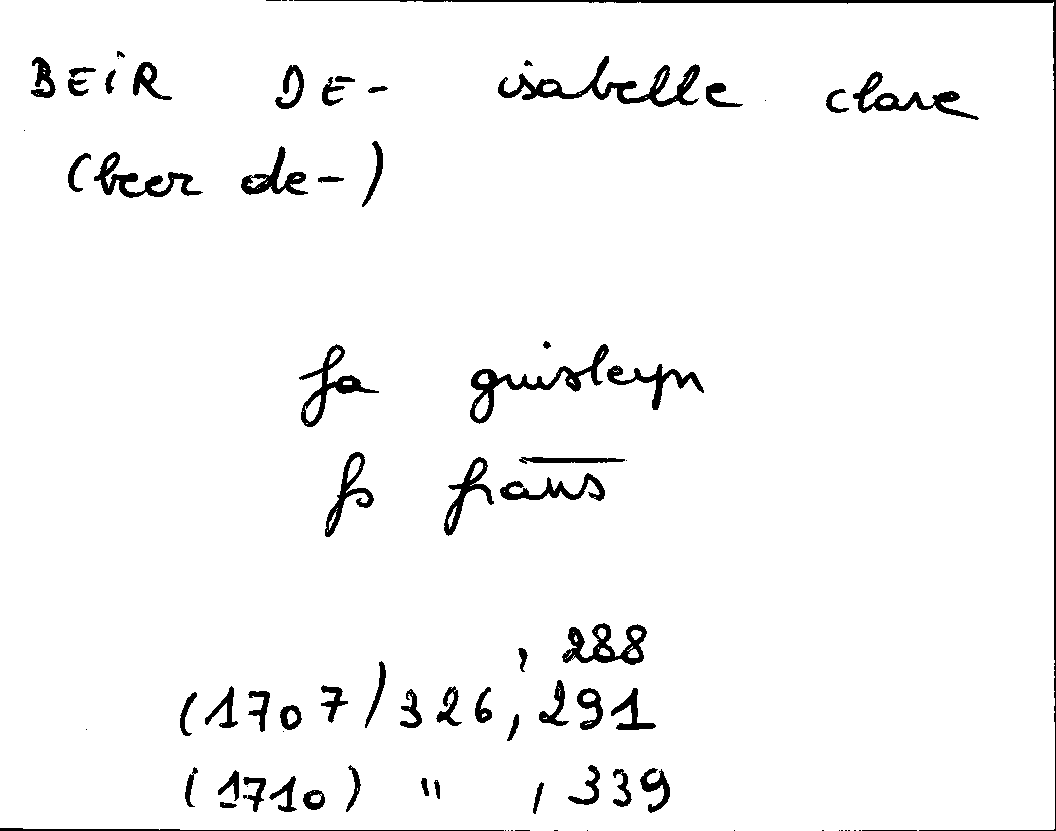 BEIR DE- isabelle clare
(beer de-)
fa guisleyn
fs frans
, 288
(1707) 326, 291
(1710) " , 339